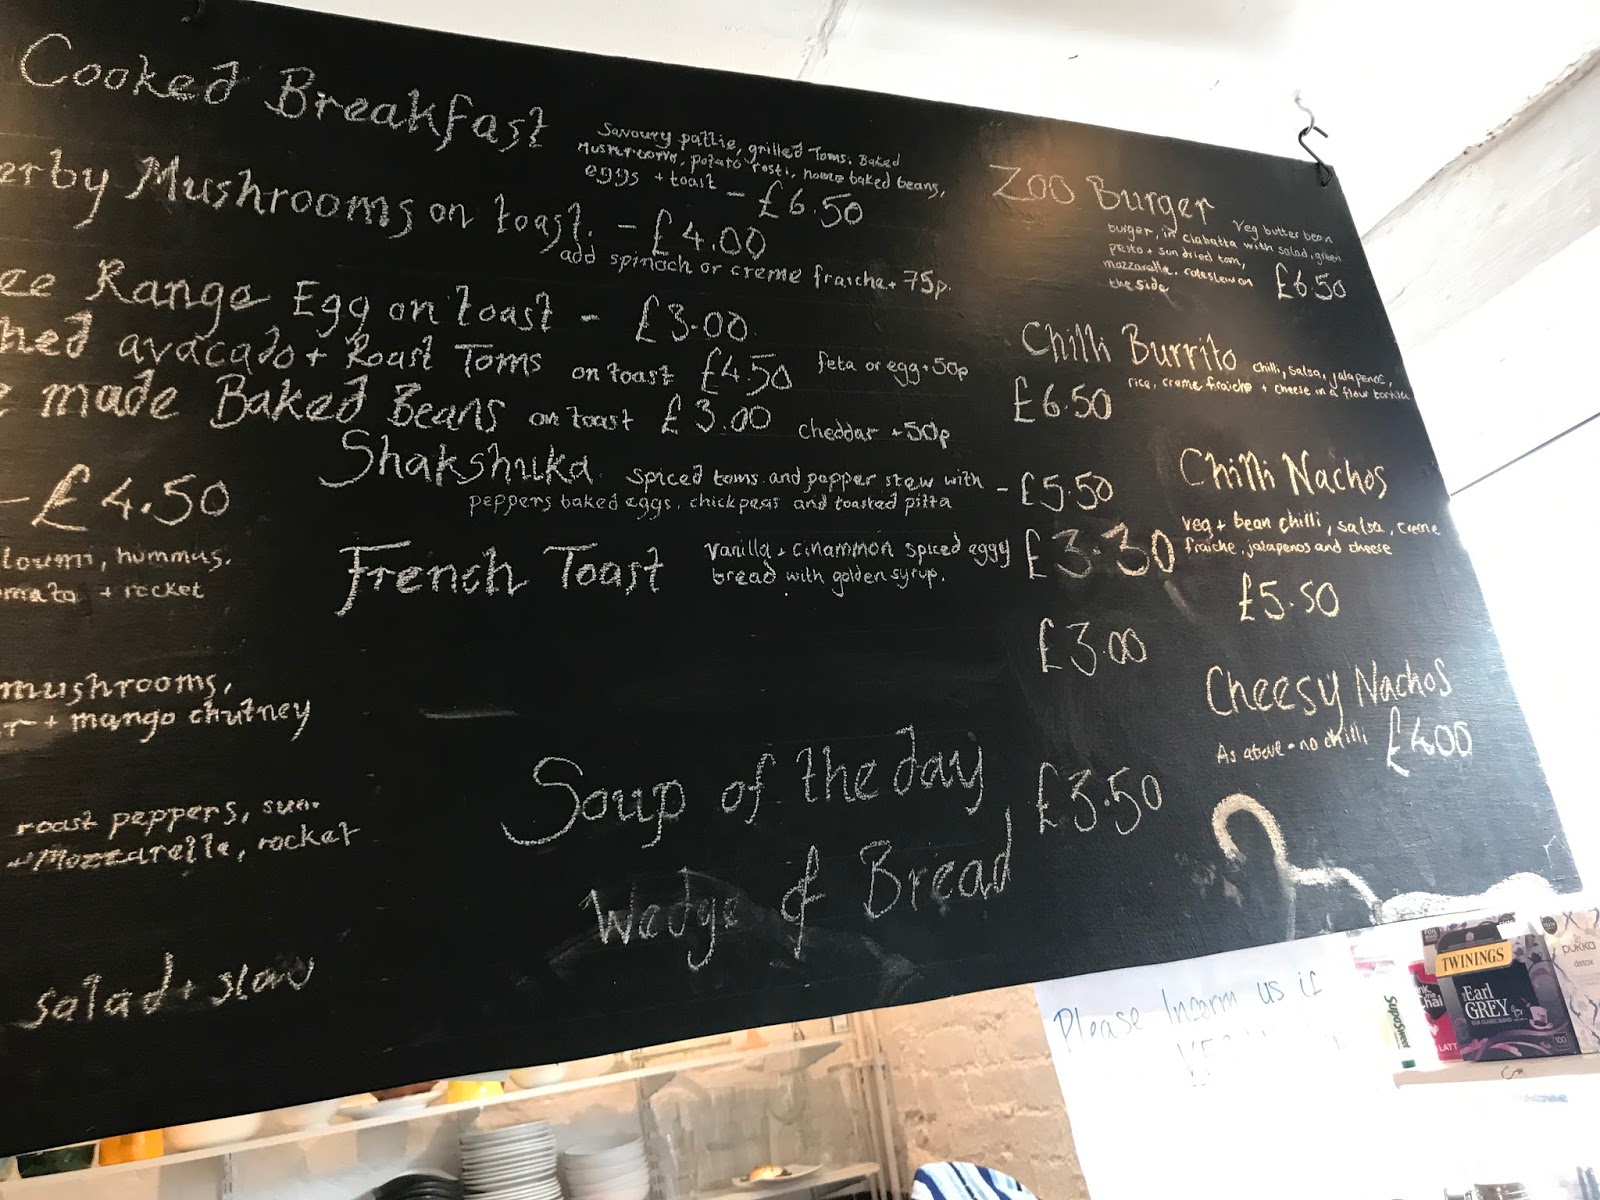 Cooked Breakfast
Savoury pattie, grilled Toms. Baked
Mushrooms, potato rosti, home baked beans,
eggs + toast - £6.50
erby Mushrooms on toast. - £4.00
add spinach or creme fraiche + 75p.
ee Range Egg on toast - £3.00
hed avacado + Roast Toms on toast £4.50 feta or egg + 50p
e made Baked Beans on toast £3.00 cheddar + 50p
Shakshuka. spiced toms. and pepper stew with - £5.50
peppers baked eggs, chickpeas and toasted pitta
- £4.50
loumi, hummus.
mato + rocket
French Toast vanilla + cinammon spiced eggy £3.30
bread with golden syrup.
£3.00
mushrooms,
r + mango chutney
roast peppers, sun.
+ Mozzarella, rocket
salad + slaw
Soup of the day £3.50
Wedge of Bread
Zoo Burger
Veg butter bean
burger, in ciabatta with salad, green
pesto + sun dried tom,
mozzarella. coleslaw on
the side £6.50
Chilli Burrito chilli, salsa, jalapenos,
rice, creme fraiche + cheese in a flour tortilla
£6.50
Chilli Nachos
veg + bean chilli, salsa, creme
fraiche, jalapenos and cheese
£5.50
Cheesy Nachos
As above - no chilli £4.00
Please Inform us if
TWININGS
Earl
GREY
100
pukka
detox